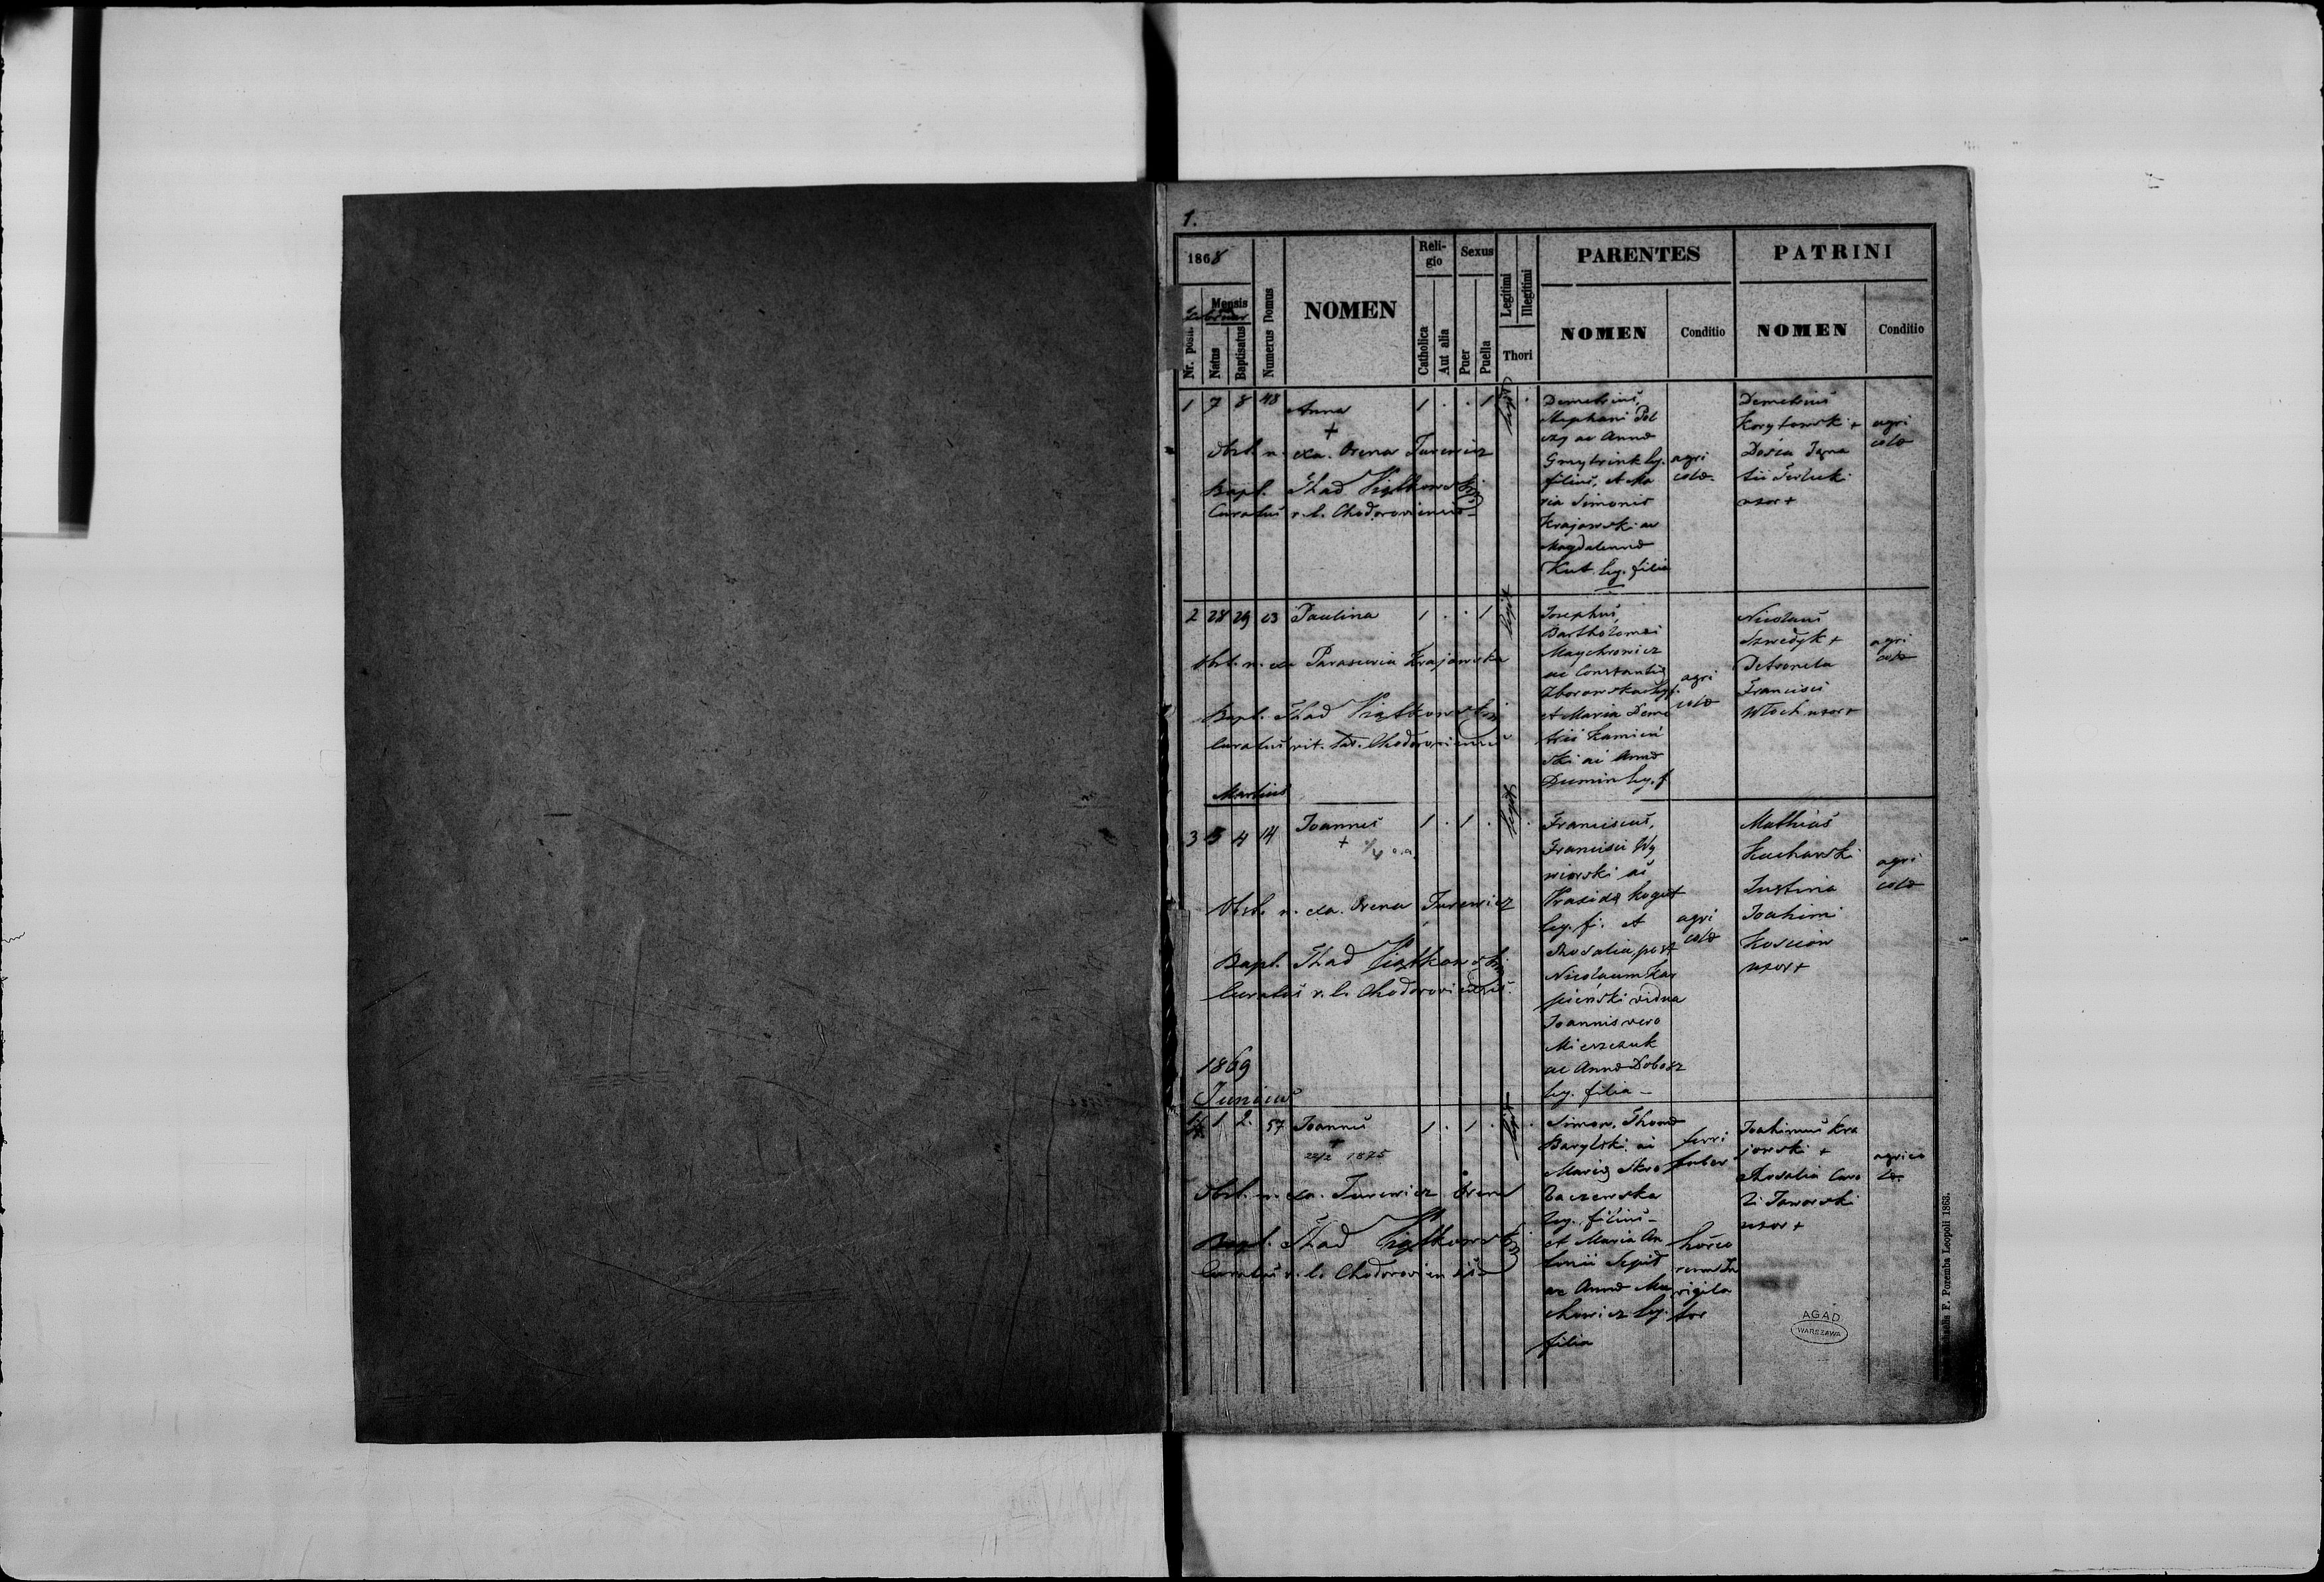 1.
1868
Reli-
gio
Sexus
PARENTES
PATRINI
Nr. posit.
Mensis
Februar
Natus
Baptisatus
Numerus Domus
NOMEN
Catholica
Aut alia
Puer
Puella
Legitimi
Illegitimi
Thori
NOMEN
Conditio
NOMEN
Conditio
1 7 8 48 Anna 1 . . 1
+
Obst. n. exa. Orena Turewicz
Bapt. Thad Kiątkowski
Curatus r. l. Chodoroviensis
Demetrius,
Stephani
ac Anna
leg.
filius, et Ma
ria Simonis
Krajowski ac
Magdalenna
Kut. leg. filia
agri
cola
Demetrius
Korytowski +
Dosia Igna
tii
uxor +
agri
cola
2 28 29 Paulina 1 . . 1
legit
Obst. n. exa Parascevia Krajowska
Bapt. Thad Kiątkowski
Curatus rit. lat. Chodoroviensis
Josephus,
Bartholomei
Maychrowicz
ac Constantia
Zborowska leg f.
et Maria Deme
trii Kamień
ski ac Anna
Dumin leg. f
agri
cola
Nicolaus
Szwedyk +
Petronela
Francisci
Włoch uxor +
agri
cola
Martius
3 3 4 14 Joannes 1 . 1 .
+
legit
Obst. n. exa. Orena Turewicz
Bapt. Thad Kiątkowski
Curatus r. l. Chodoroviensis.
Franciscus,
Francisci Wy
wiorski ac
Kogut
leg. fi. et
Rosalia, post
Nicolaum Kar
pieński vidua
Joannis vero
Mierzczuk
ac Anna Dobosz
leg. filia -
agri
cola
Mathias
Kucharski
Justina
Joahimi
Kościów
uxor +
agri
cola
1869
Junius
1 2. 57 Joannes 1 . 1 .
+
22/2 1875
legit
Obst. n. exa. Turewicz Orena
Bapt. Thad Kiątkowski
Curatus r. l. Chodoroviensis
Simon, Thoma
Barylski ac
Maria Skro
baczewska
leg. filius -
et Maria An
tonii
ac Anna Mu
chowicz leg.
filia
ferri
faber
horreo
rum
vigila
tor
Joahimus Kra
jowski +
Rosalia Caro
li Jaworski
uxor +
agrico
la
AGAD
WARSZAWA
F. Poremba Leopoli 1863.